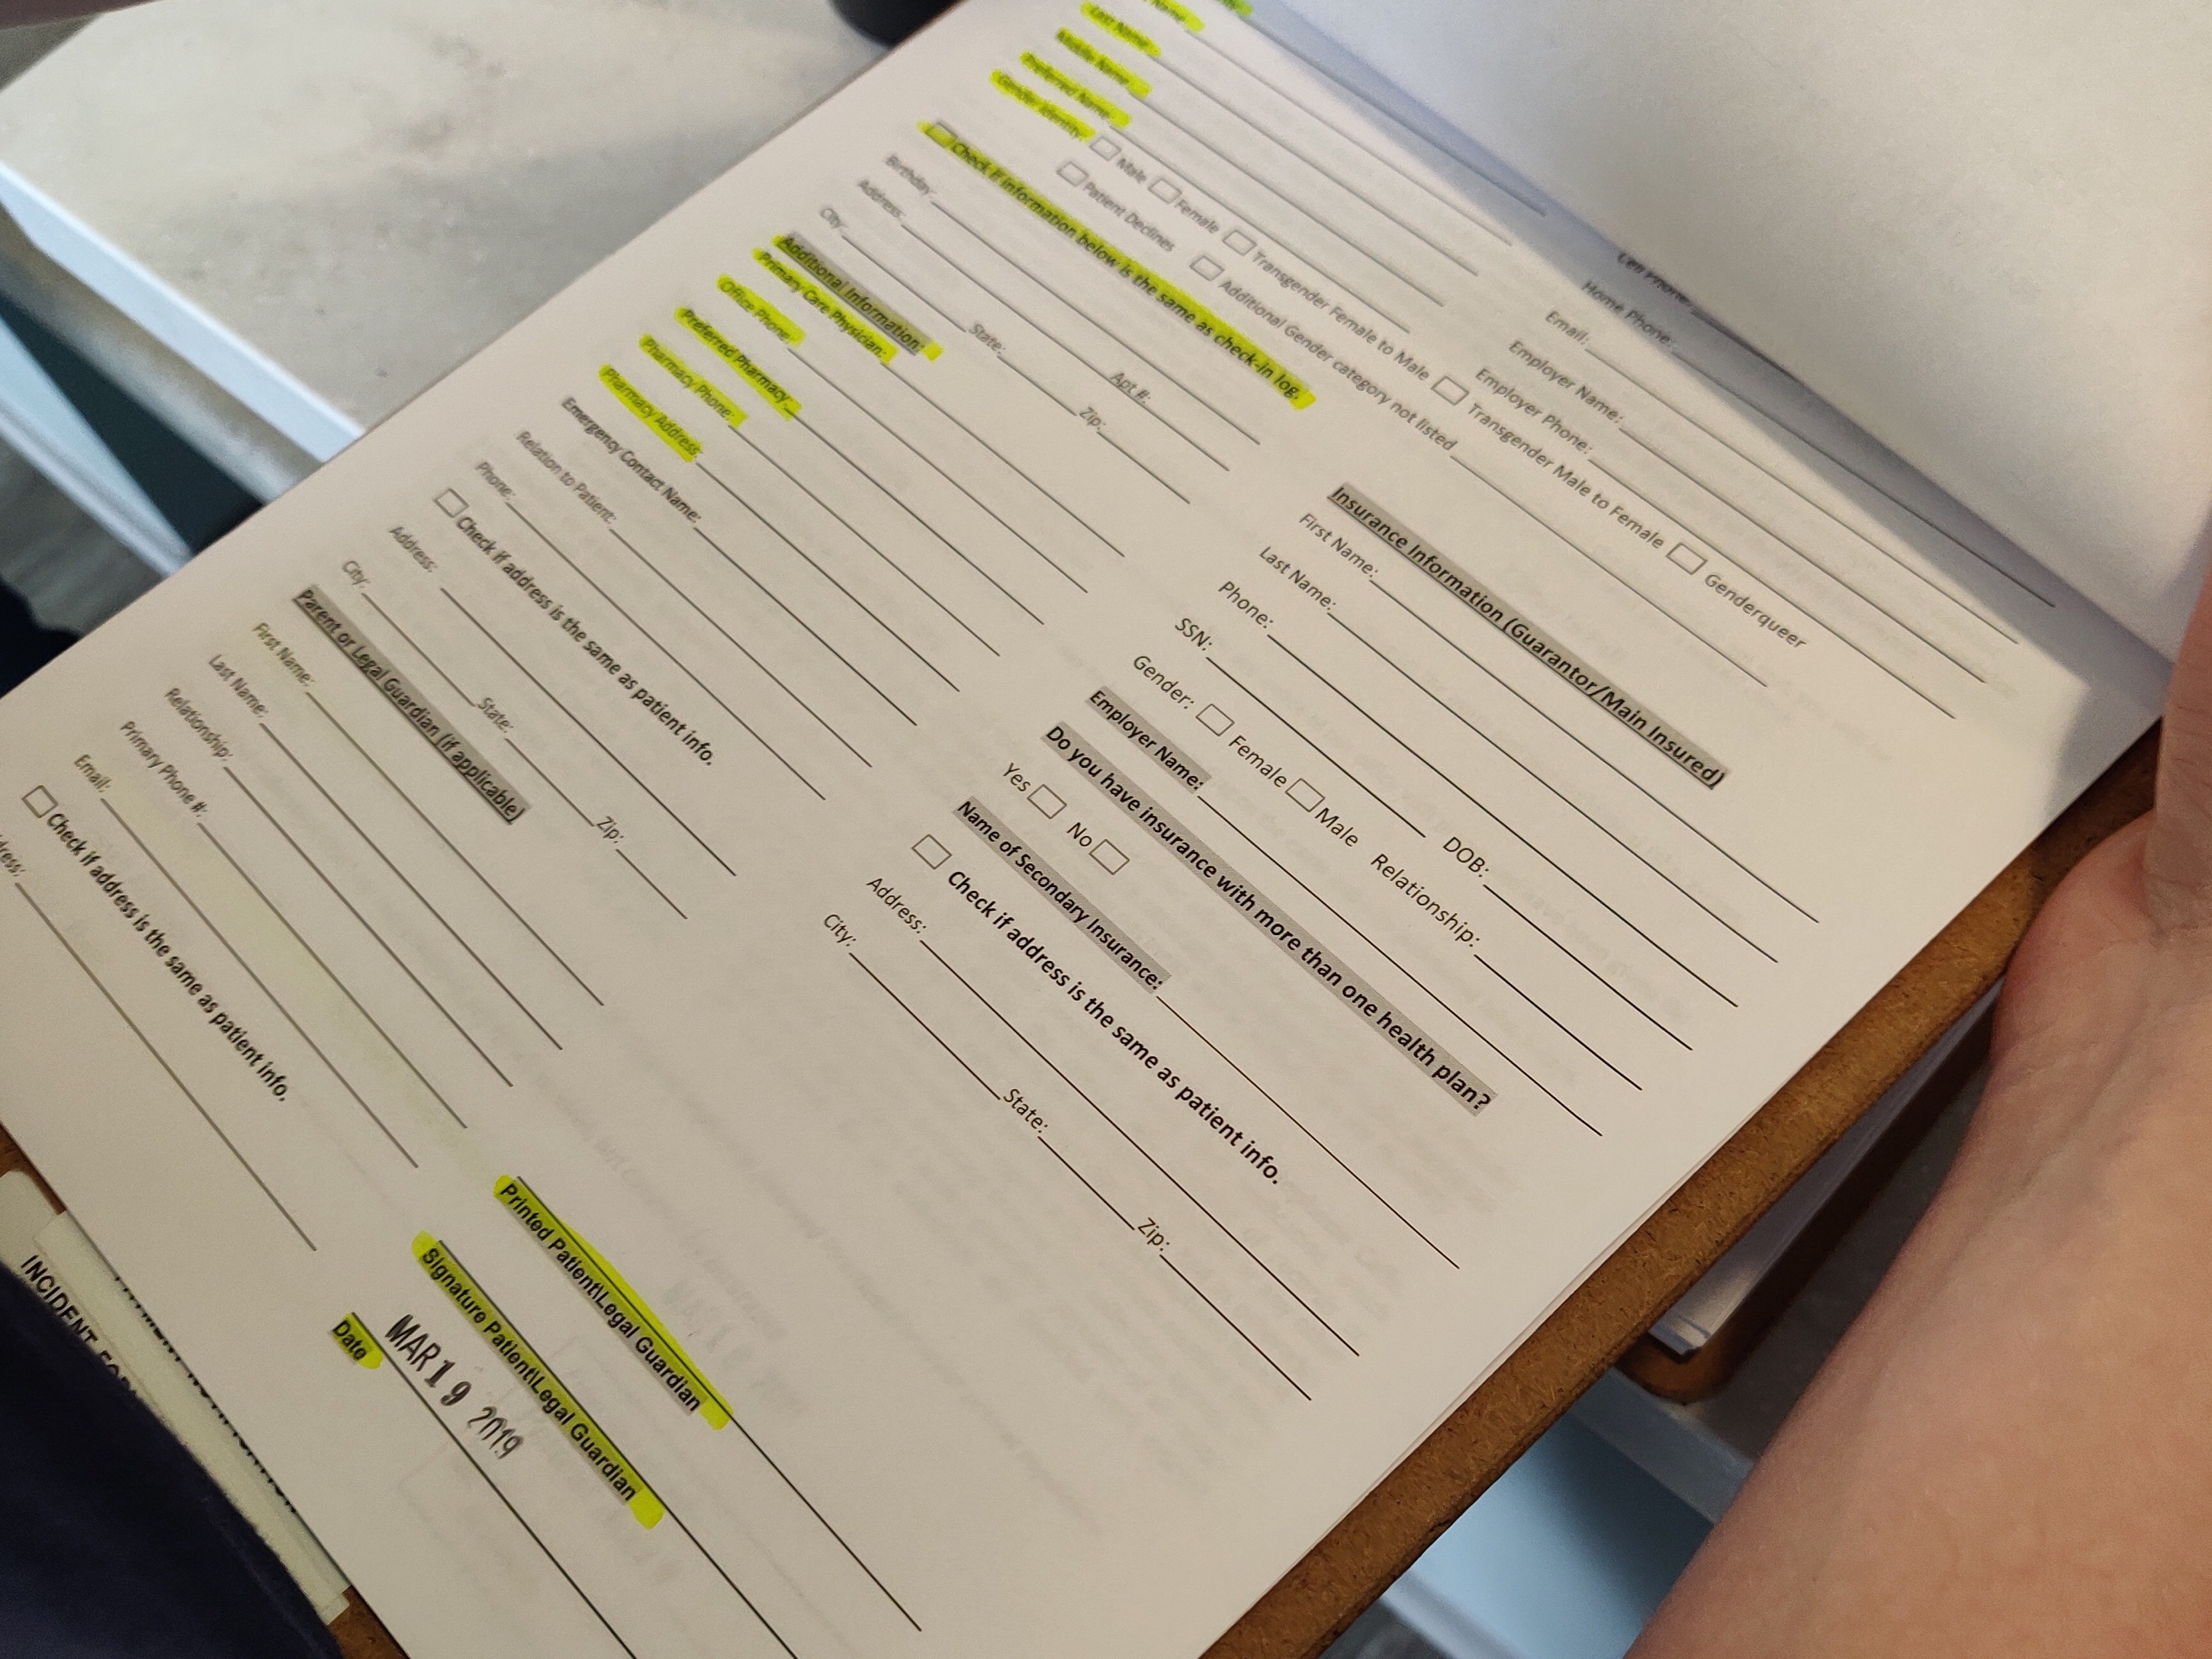 Name
Last Name:
Middle Name:
Preferred Name:
Gender Identity: Male Female Transgender Female to Male Transgender Male to Female Genderqueer
Patient Declines Additional Gender category not listed
Check if information below is the same as check-in log.
Birthday:
Address: Apt #:
City: State: Zip:
Additional Information:
Primary Care Physician:
Office Phone:
Preferred Pharmacy:
Pharmacy Phone:
Pharmacy Address:
Emergency Contact Name:
Relation to Patient:
Phone:
Check if address is the same as patient info.
Address:
City: State: Zip:
Parent or Legal Guardian (if applicable)
First Name:
Last Name:
Relationship:
Primary Phone #:
Email:
Check if address is the same as patient info.
Cell Phone:
Home Phone:
Email:
Employer Name:
Employer Phone:
Insurance Information (Guarantor/Main Insured)
First Name:
Last Name:
Phone:
SSN: DOB:
Gender: Female Male Relationship:
Employer Name:
Do you have insurance with more than one health plan?
Yes No
Name of Secondary Insurance:
Check if address is the same as patient info.
Address:
City: State: Zip:
Printed Patient\Legal Guardian
Signature Patient\Legal Guardian
MAR 19 2019
Date
INCIDENT